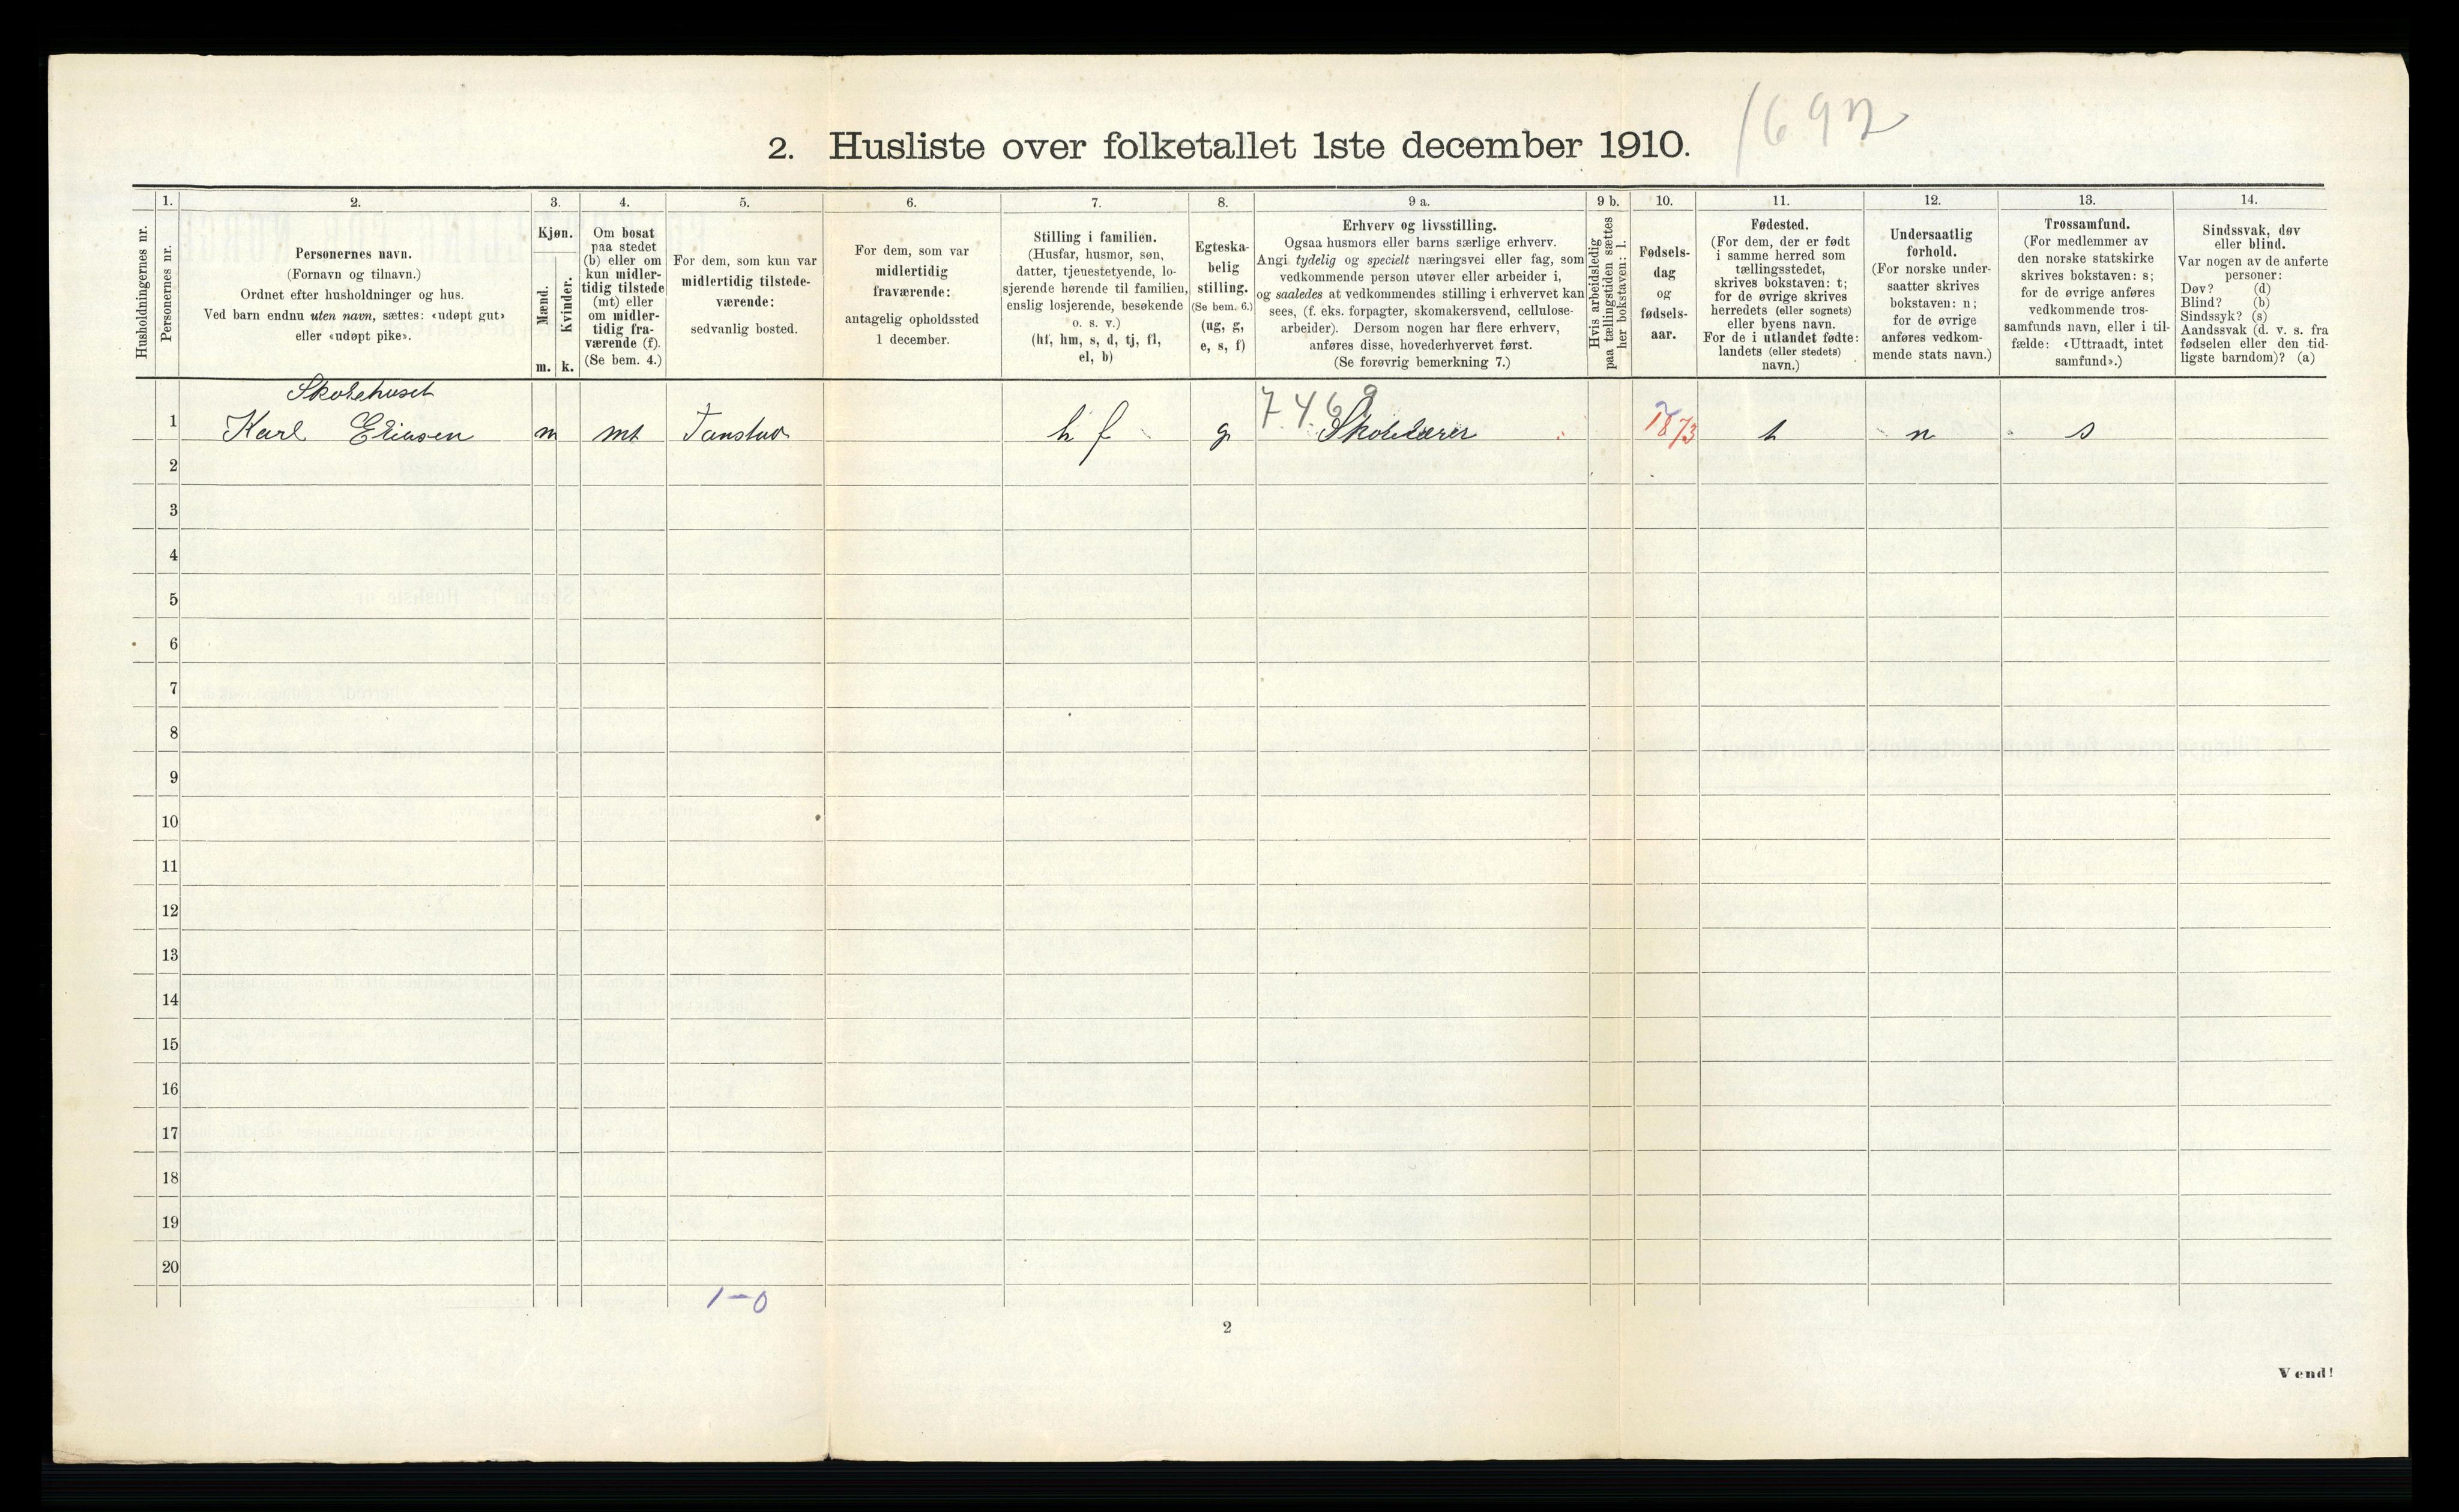 1692
2. Husliste over folketallet 1ste december 1910.
Husholdningernes nr.
1.
Personernes nr.
2.
Personernes navn.
(Fornavn og tilnavn.)
Ordnet efter husholdninger og hus.
Ved barn endnu uten navn, sættes: «udøpt gut»
eller «udøpt pike».
3.
Kjøn.
Mænd.
Kvinder.
m. k.
4.
Om bosat
paa stedet
(b) eller om
kun midler-
tidig tilstede
(mt) eller
om midler-
tidig fra-
værende (f).
(Se bem. 4.)
5.
For dem, som kun var
midlertidig tilstede-
værende:
sedvanlig bosted.
6.
For dem, som var
midlertidig
fraværende:
antagelig opholdssted
1 december.
7.
Stilling i familien.
(Husfar, husmor, søn,
datter, tjenestetyende, lo-
sjerende hørende til familien,
enslig losjerende, besøkende
o. s. v.)
(hf, hm, s, d, tj, fl,
el, b)
8.
Egteska-
belig
stilling.
(Se bem. 6.)
(ug, g,
e, s, f)
9 a.
Erhverv og livsstilling.
Ogsaa husmors eller barns særlige erhverv.
Angi tydelig og specielt næringsvei eller fag, som
vedkommende person utøver eller arbeider i,
og saaledes at vedkommendes stilling i erhvervet kan
sees, (f. eks. forpagter, skomakersvend, cellulose-
arbeider). Dersom nogen har flere erhverv,
anføres disse, hovederhvervet først.
(Se forøvrig bemerkning 7.)
9 b.
Hvis arbeidsledig
paa tællingstiden sættes
her bokstaven: l.
10.
Fødsels-
dag
og
fødsels-
aar.
11.
Fødested.
(For dem, der er født
i samme herred som
tællingsstedet,
skrives bokstaven: t;
for de øvrige skrives
herredets (eller sognets)
eller byens navn.
For de i utlandet fødte:
landets (eller stedets)
navn.)
12.
Undersaatlig
forhold.
(For norske under-
saatter skrives
bokstaven: n;
for de øvrige
anføres vedkom-
mende stats navn.)
13.
Trossamfund.
(For medlemmer av
den norske statskirke
skrives bokstaven: s;
for de øvrige anføres
vedkommende tros-
samfunds navn, eller i til-
fælde: «Uttraadt, intet
samfund».)
14.
Sindssvak, døv
eller blind.
Var nogen av de anførte
personer:
Døv? (d)
Blind? (b)
Sindssyk? (s)
Aandssvak (d. v. s. fra
fødselen eller den tid-
ligste barndom)? (a)
Skolehuset
7.4.69
1 Karl Eliasen m mt Tanstad hf g Skolelærer 1873 t n s
2
3
4
5
6
7
8
9
10
11
12
13
14
15
16
17
18
19
20
1-0
2
Vend!